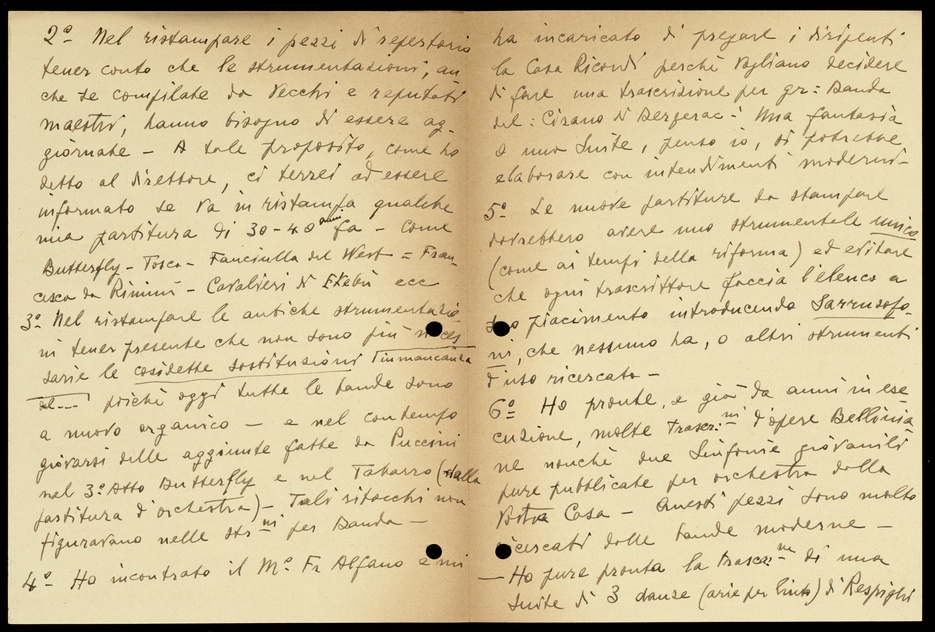 2º Nel ristampare i pezzi di repertorio
tener conto che le strumentazioni, an
che se compilate da vecchi e reputati
maestri, hanno bisogno di essere ag-
giornate – A tale proposito, come ho
detto al direttore, ci terrei ad essere
informato se va in ristampa qualche
mia partitura di 30-40 anni fa – Come
Butterfly – Tosca – Fanciulla del West = Fran-
cesca da Rimini – Cavalieri di Ekebù ecc
3º Nel ristampare le antiche strumentazio
ni tener presente che non sono più neces
sarie le cosidette sostituzioni (in mancanza
al....) poichè oggi tutte le bande sono
a nuovo organico – e nel contempo
giovarsi delle aggiunte fatte da Puccini
nel 3º Atto Butterfly e nel Tabarro (dalla
partitura d'orchestra) – Tali ritocchi non
figuravano nelle str.ni per Banda –
4º Ho incontrato il Mº Fr Alfano e mi
ha incaricato di pregare i dirigenti
la Casa Ricordi perchè vogliano decidere
di fare una trascrizione per gr: Banda
del: Cirano di Bergerac: Una fantasia
o una Suite, penso io, si potrebbe
elaborare con intendimenti moderni –
5º Le nuove partiture da stampare
dovrebbero avere uno strumentale unico
(come ai tempi della riforma) ed evitare
che ogni trascrittore faccia l'elenco a
suo piacimento introducendo Sarrusofo-
ni, che nessuno ha, o altri strumenti
d'uso ricercato –
6º Ho pronte, e già da anni in ese
cuzione, molte trascr.ni d'opere Bellinia
ne nonchè due Sinfonie giovanili
pure pubblicate per orchestra dalla
Vostra Casa – Questi pezzi sono molto
ricercati dalle bande moderne –
– Ho pure pronta la trascr.ne di una
Suite di 3 danze (arie per liuto) di Respighi